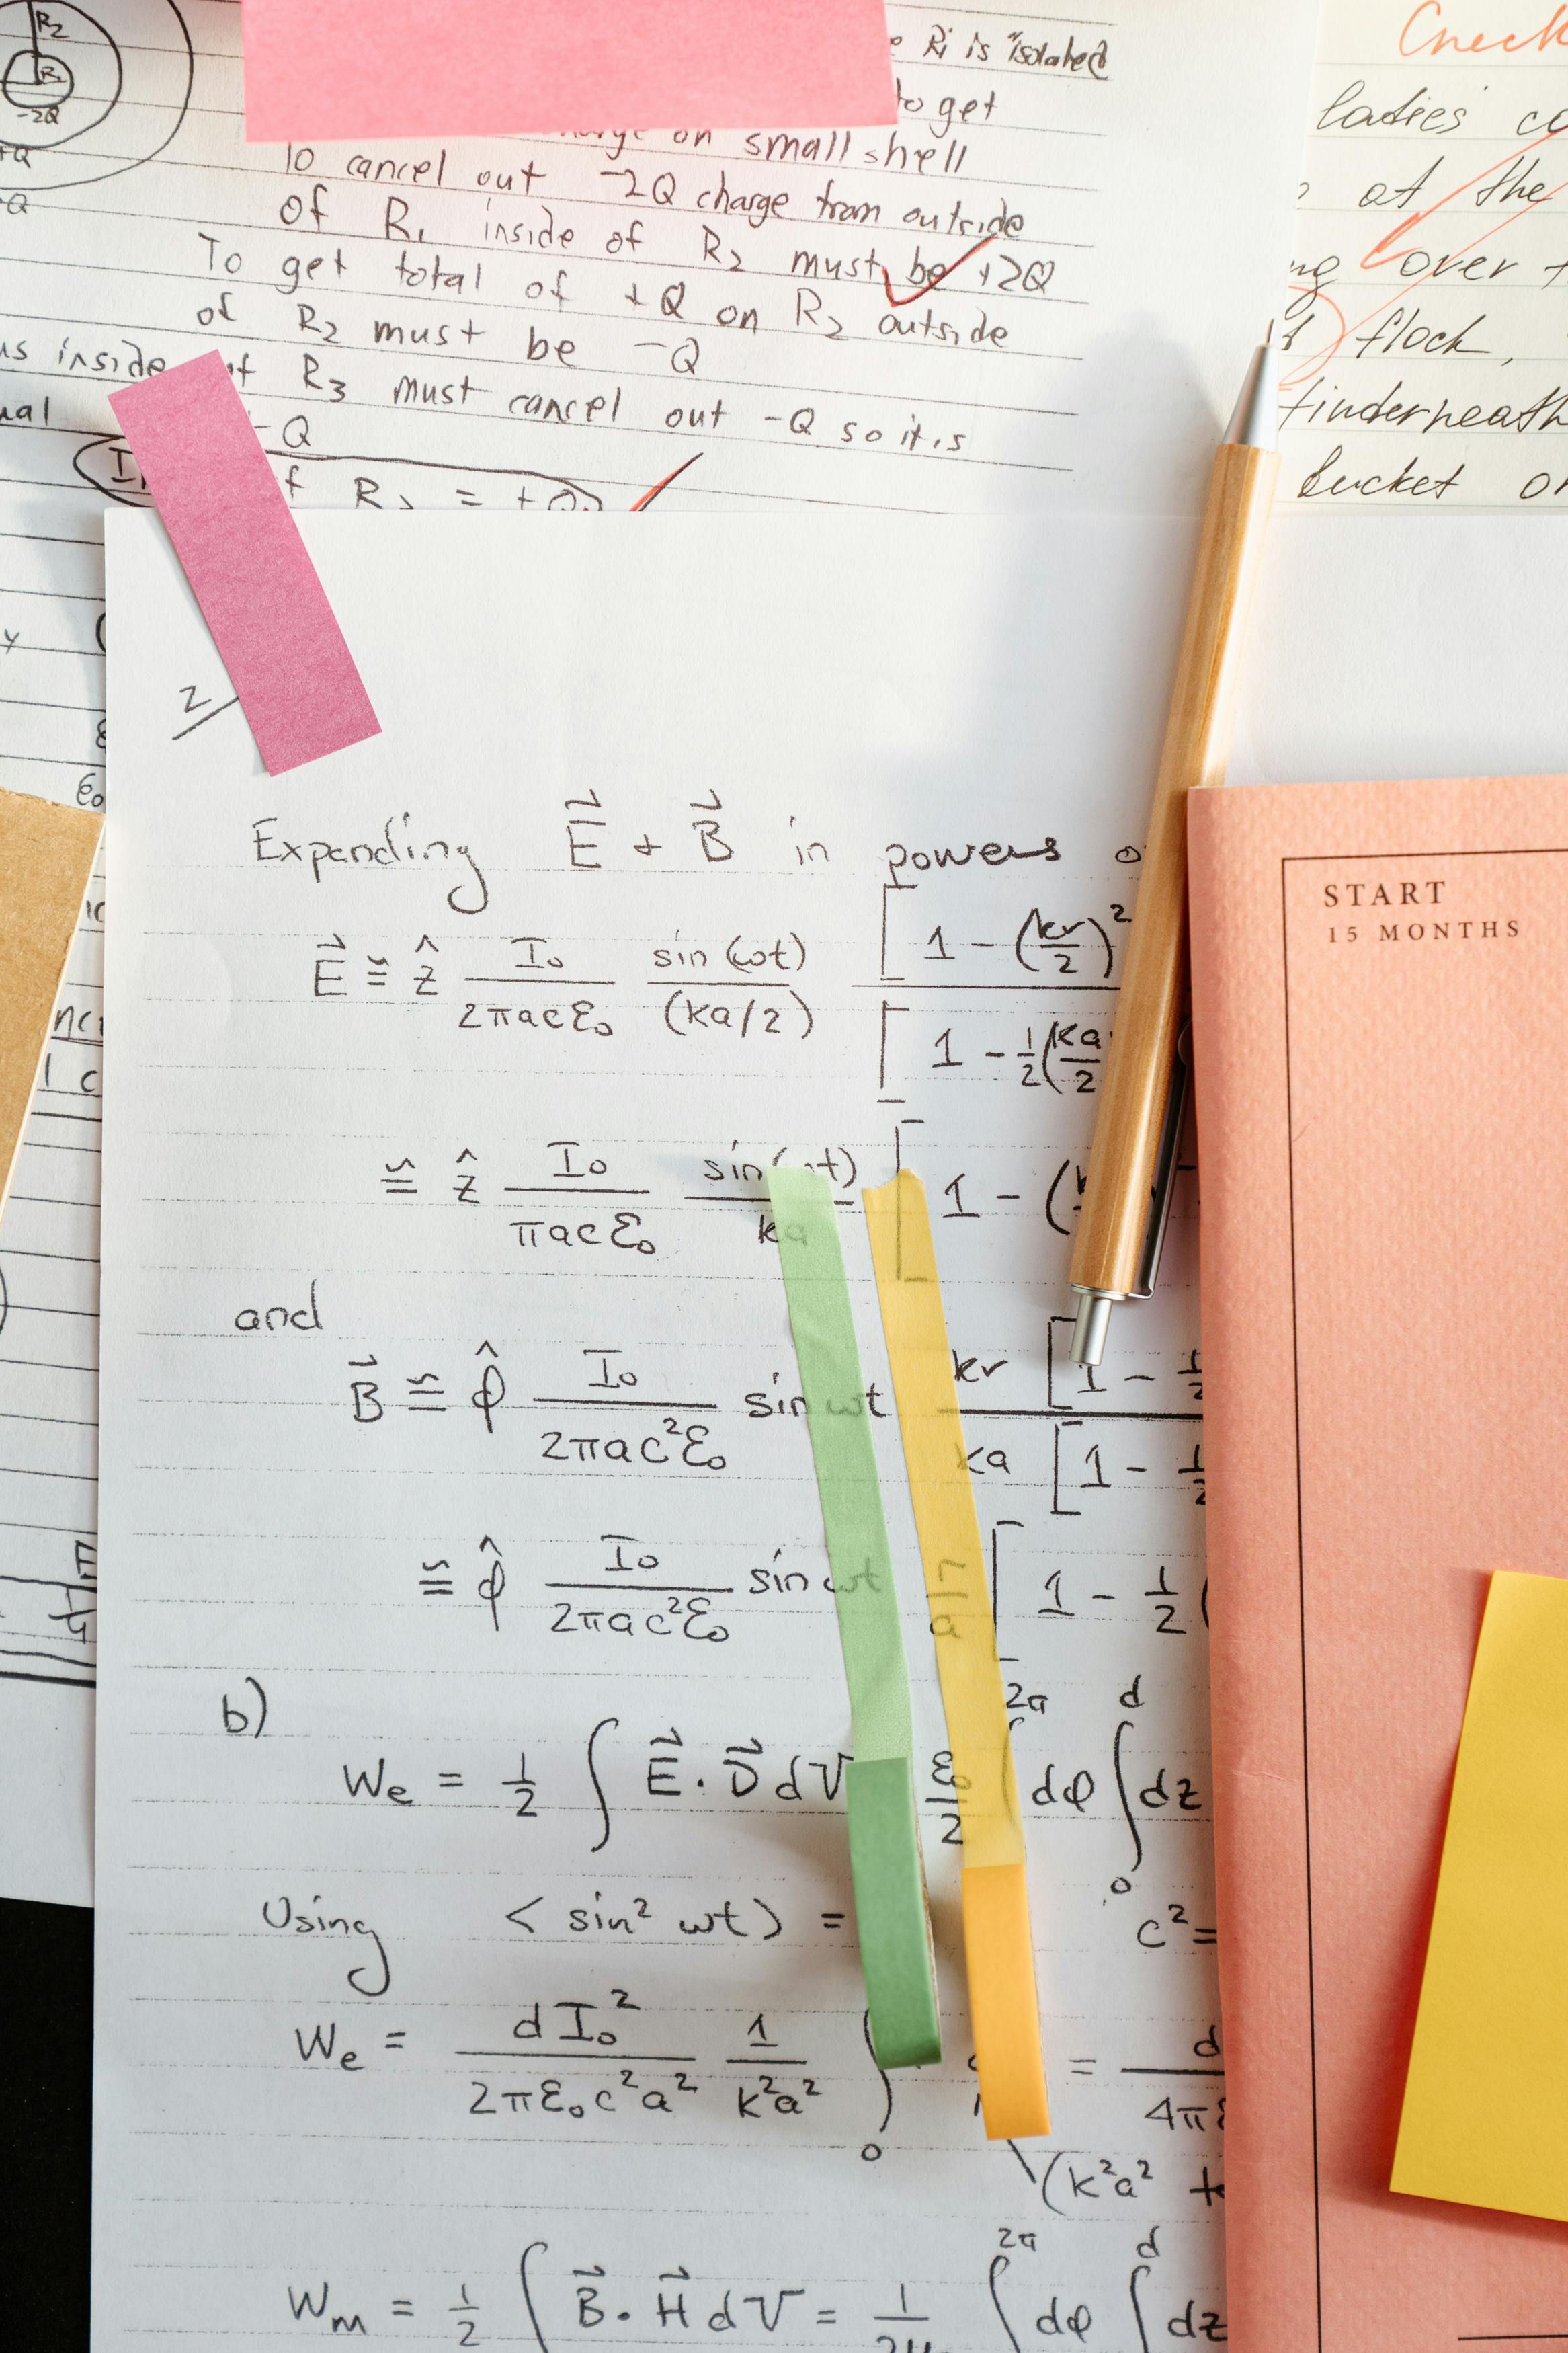 R₂
R₁
-2Q
+Q
-Q
Ri is isolated
to get
charge on small shell
To cancel out -2Q charge from outside
of R₁ inside of R₂ must be +2Q
To get total of +Q on R₂ outside
of R₂ must be -Q
inside of R₃ must cancel out -Q so it is
-Q
R₂ = +Q
Check
ladies
at the
over
flock,
underneath
bucket
2
Expanding E⃗ + B⃗ in powers
E⃗ ≅ ẑ I₀/(2πacε₀) sin(ωt)/(ka/2) [1 - (kr/2)²
[1 - ½(ka/2
≅ ẑ I₀/(πacε₀) sin(ωt)/ka [1 - (
and
B⃗ ≅ φ̂ I₀/(2πac²ε₀) sin ωt kr [1 - ½
ka [1 - ½
≅ φ̂ I₀/(2πac²ε₀) sin ωt r/a [1 - ½(
b)
We = ½ ∫ E⃗·D⃗ dV ε₀/2 ∫ 2π dφ ∫₀ᵈ dz
Using < sin² ωt > = c² =
We = dI₀²/(2πε₀c²a²) 1/(k²a²) ∫₀ = d/4πε
(k²a²
Wm = ½ ∫ B⃗·H⃗ dV = 1/2μ ∫ 2π dφ ∫ d dz
START
15 MONTHS